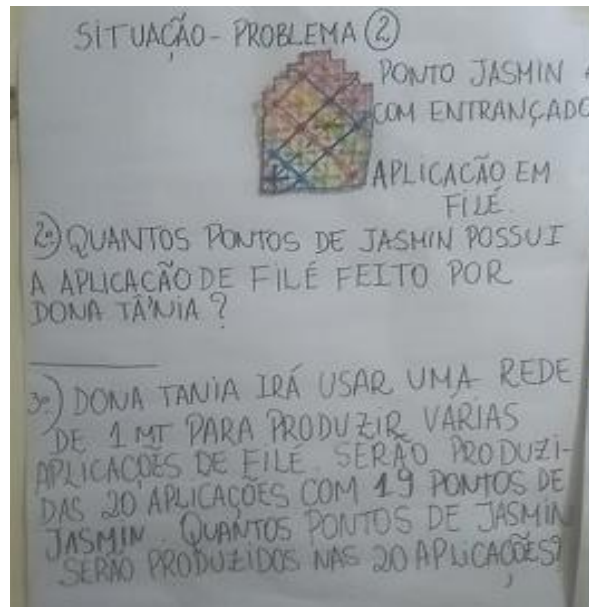 SITUAÇÃO - PROBLEMA 2
PONTO JASMIN
COM ENTRANÇADO
APLICAÇÃO EM
FILÉ.
2º) QUANTOS PONTOS DE JASMIN POSSUI
A APLICAÇÃO DE FILÉ FEITO POR
DONA TÂNIA?
3º) DONA TANIA IRÁ USAR UMA REDE
DE 1 MT PARA PRODUZIR VARIAS
APLICAÇÕES DE FILE. SERÃO PRODUZI-
DAS 20 APLICAÇÕES COM 19 PONTOS DE
JASMIN. QUANTOS PONTOS DE JASMIN
SERÃO PRODUZIDOS NAS 20 APLICAÇÕES?